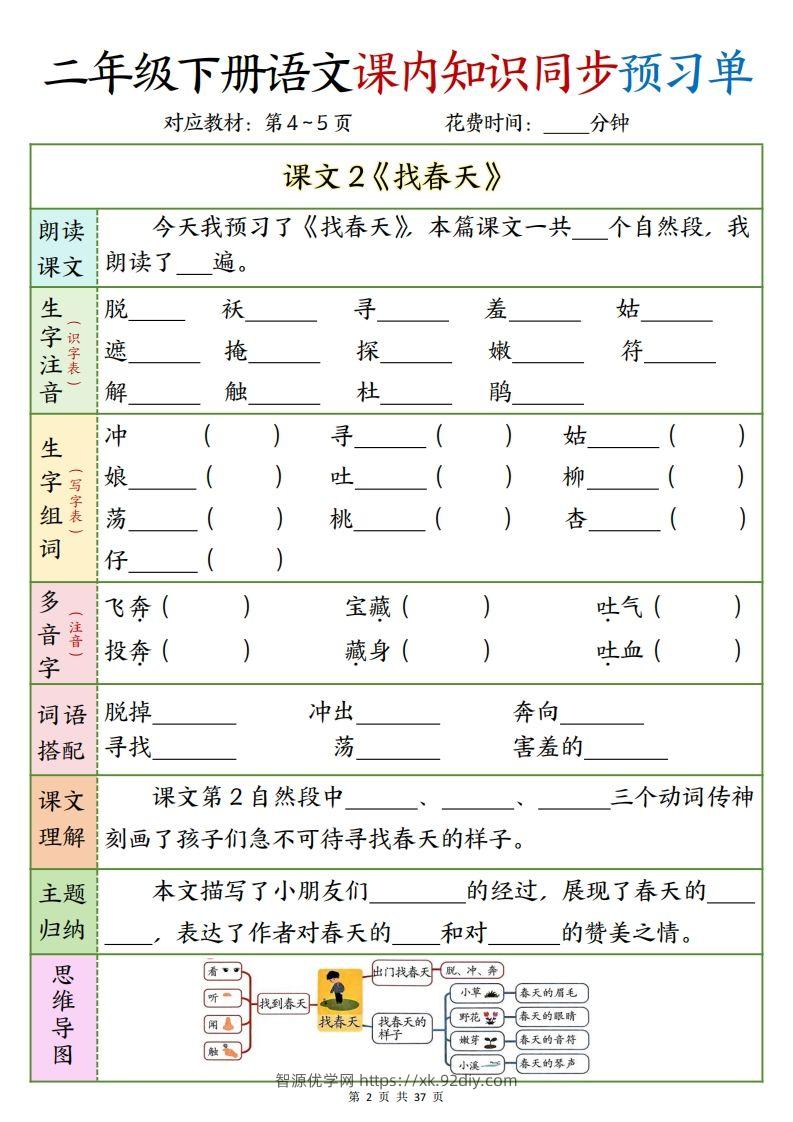 二年级下册语文课内知识同步预习单
对应教材：第4~5页 花费时间：____分钟
课文2《找春天》
朗读课文
今天我预习了《找春天》，本篇课文一共___个自然段，我
朗读了___遍。
生字注音（识字表）
脱_____ 袄______ 寻______ 羞______ 姑______
遮______ 掩______ 探______ 嫩______ 符______
解______ 触______ 杜______ 鹃______
生字组词（写字表）
冲 （ ） 寻______（ ） 姑______（ ）
娘______（ ） 吐______（ ） 柳______（ ）
荡______（ ） 桃______（ ） 杏______（ ）
仔______（ ）
多音字（注音）
飞奔（ ） 宝藏（ ） 吐气（ ）
投奔（ ） 藏身（ ） 吐血（ ）
词语搭配
脱掉_______ 冲出_______ 奔向_______
寻找_______ 荡_______ 害羞的_______
课文理解
课文第2自然段中______、______、______三个动词传神
刻画了孩子们急不可待寻找春天的样子。
主题归纳
本文描写了小朋友们________的经过，展现了春天的____
____，表达了作者对春天的____和对______的赞美之情。
思维导图
看
听
闻
触
找到春天
找春天
出门找春天
脱、冲、奔
找春天的样子
小草 春天的眉毛
野花 春天的眼睛
嫩芽 春天的音符
小溪 春天的琴声
智源优学网 https://xk.92diy.com
第 2 页 共 37 页